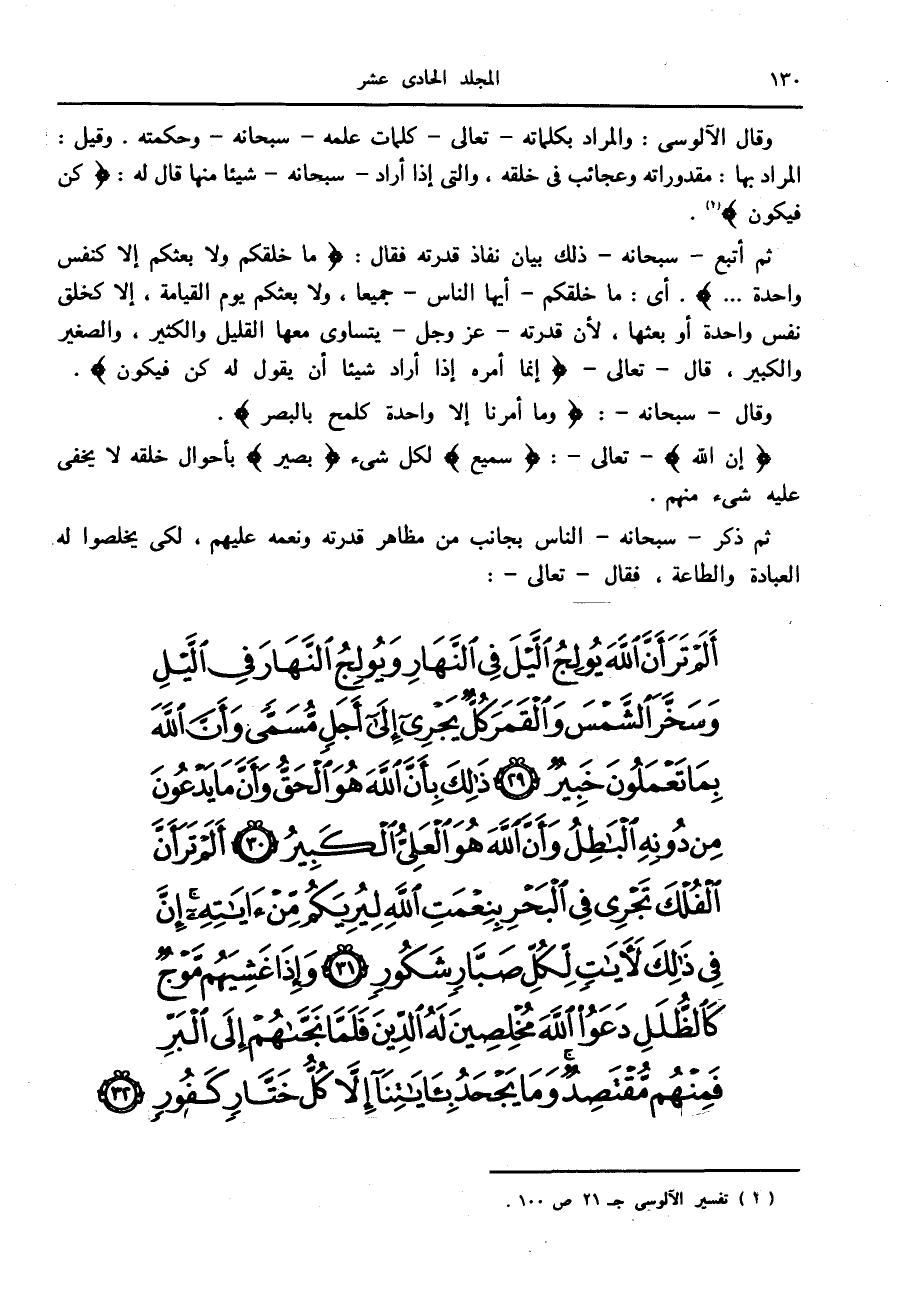 ١٣٠ المجلد الحادى عشر
وقال الآلوسى : والمراد بكلماته – تعالى – كلمات علمه – سبحانه – وحكمته . وقيل :
المراد بها : مقدوراته وعجائب فى خلقه ، والتى إذا أراد – سبحانه – شيئا منها قال له : ﴿ كن
فيكون ﴾(٢) .
ثم أتبع – سبحانه – ذلك بيان نفاذ قدرته فقال : ﴿ ما خلقكم ولا بعثكم إلا كنفس
واحدة ... ﴾ . أى : ما خلقكم – أيها الناس – جميعا ، ولا بعثكم يوم القيامة ، إلا كخلق
نفس واحدة أو بعثها ، لأن قدرته – عز وجل – يتساوى معها القليل والكثير ، والصغير
والكبير ، قال – تعالى – ﴿ إنما أمره إذا أراد شيئا أن يقول له كن فيكون ﴾ .
وقال – سبحانه – : ﴿ وما أمرنا إلا واحدة كلمح بالبصر ﴾ .
﴿ إن الله ﴾ – تعالى – : ﴿ سميع ﴾ لكل شىء ﴿ بصير ﴾ بأحوال خلقه لا يخفى
عليه شىء منهم .
ثم ذكر – سبحانه – الناس بجانب من مظاهر قدرته ونعمه عليهم ، لكى يخلصوا له
العبادة والطاعة ، فقال – تعالى – :
أَلَمْ تَرَ أَنَّ ٱللَّهَ يُولِجُ ٱلَّيْلَ فِى ٱلنَّهَارِ وَيُولِجُ ٱلنَّهَارَ فِى ٱلَّيْلِ
وَسَخَّرَ ٱلشَّمْسَ وَٱلْقَمَرَ كُلٌّ يَجْرِىٓ إِلَىٰٓ أَجَلٍ مُّسَمًّى وَأَنَّ ٱللَّهَ
بِمَا تَعْمَلُونَ خَبِيرٌ ٢٩ ذَٰلِكَ بِأَنَّ ٱللَّهَ هُوَ ٱلْحَقُّ وَأَنَّ مَا يَدْعُونَ
مِن دُونِهِ ٱلْبَٰطِلُ وَأَنَّ ٱللَّهَ هُوَ ٱلْعَلِىُّ ٱلْكَبِيرُ ٣٠ أَلَمْ تَرَ أَنَّ
ٱلْفُلْكَ تَجْرِى فِى ٱلْبَحْرِ بِنِعْمَتِ ٱللَّهِ لِيُرِيَكُم مِّنْ ءَايَٰتِهِۦٓ ۚ إِنَّ
فِى ذَٰلِكَ لَءَايَٰتٍ لِّكُلِّ صَبَّارٍ شَكُورٍ ٣١ وَإِذَا غَشِيَهُم مَّوْجٌ
كَٱلظُّلَلِ دَعَوُا۟ ٱللَّهَ مُخْلِصِينَ لَهُ ٱلدِّينَ فَلَمَّا نَجَّىٰهُمْ إِلَى ٱلْبَرِّ
فَمِنْهُم مُّقْتَصِدٌ ۚ وَمَا يَجْحَدُ بِـَٔايَٰتِنَآ إِلَّا كُلُّ خَتَّارٍ كَفُورٍ ٣٢
( ٢ ) تفسير الآلوسى جـ ٢١ ص ١٠٠ .